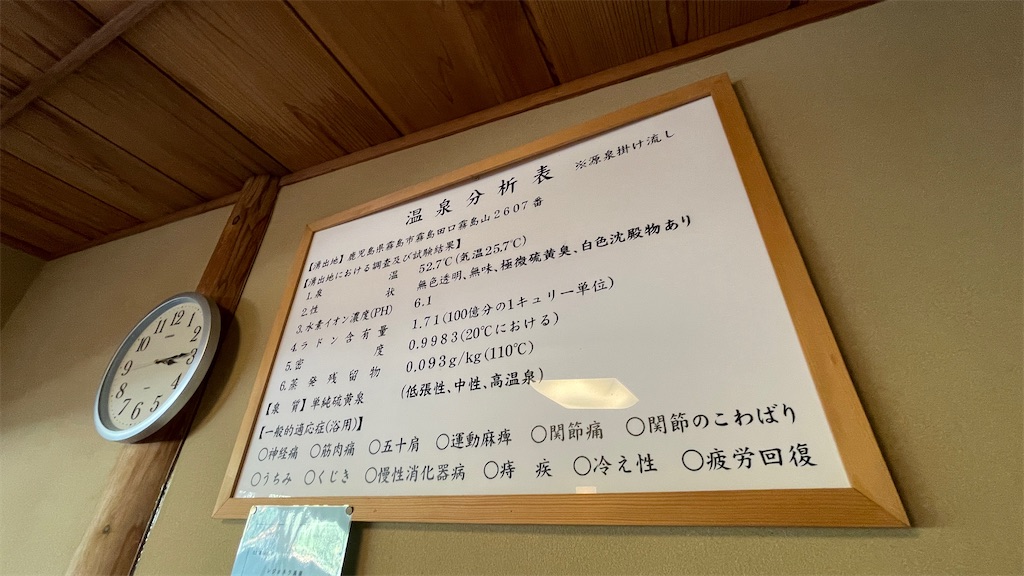 温泉分析表 ※源泉掛け流し
【湧出地】鹿児島県霧島市霧島田口霧島山2607番
【湧出地における調査及び試験結果】
1.泉 温 52.7℃(気温25.7℃)
2.性 状 無色透明、無味、極微硫黄臭、白色沈殿物あり
3.水素イオン濃度(PH) 6.1
4.ラドン含有量 1.71(100億分の1キュリー単位)
5.密 度 0.9983(20℃における)
6.蒸発残留物 0.093g/kg(110℃)
【泉 質】単純硫黄泉 (低張性、中性、高温泉)
【一般的適応症(浴用)】
○神経痛 ○筋肉痛 ○五十肩 ○運動麻痺 ○関節痛 ○関節のこわばり
○うちみ ○くじき ○慢性消化器病 ○痔 疾 ○冷え性 ○疲労回復
12
1
2
3
4
5
6
7
8
9
10
11